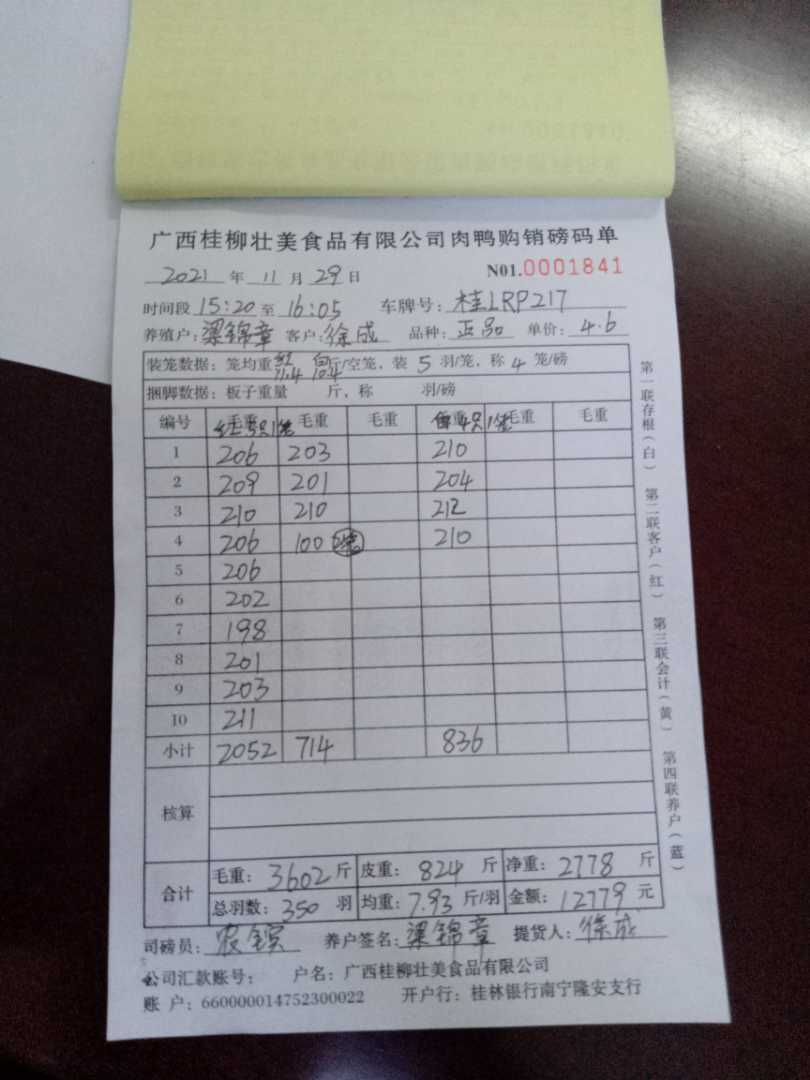 广西桂柳壮美食品有限公司肉鸭购销磅码单
2021 年 11 月 29 日 N01.0001841
时间段 15:20 至 16:05 车牌号: 桂LRP217
养殖户: 梁锦章 客户: 徐成 品种: 正品 单价: 4.6
装笼数据: 笼均重 红11.4 白10.4 斤/空笼, 装 5 羽/笼, 称 4 笼/磅
捆脚数据: 板子重量 斤, 称 羽/磅
编号 毛重 毛重 毛重 毛重 毛重 毛重
红 5只1笼 白 4只1笼
1 206 203 210
2 209 201 204
3 210 210 212
4 206 100 2笼 210
5 206
6 202
7 198
8 201
9 203
10 211
小计 2052 714 836
核算
合计 毛重: 3602 斤 皮重: 824 斤 净重: 2778 斤
总羽数: 350 羽 均重: 7.93 斤/羽 金额: 12779 元
司磅员: 养户签名: 梁锦章 提货人: 徐成
公司汇款账号: 户名: 广西桂柳壮美食品有限公司
账 户: 660000014752300022 开户行: 桂林银行南宁隆安支行
第一联存根(白) 第二联客户(红) 第三联会计(黄) 第四联养户(蓝)